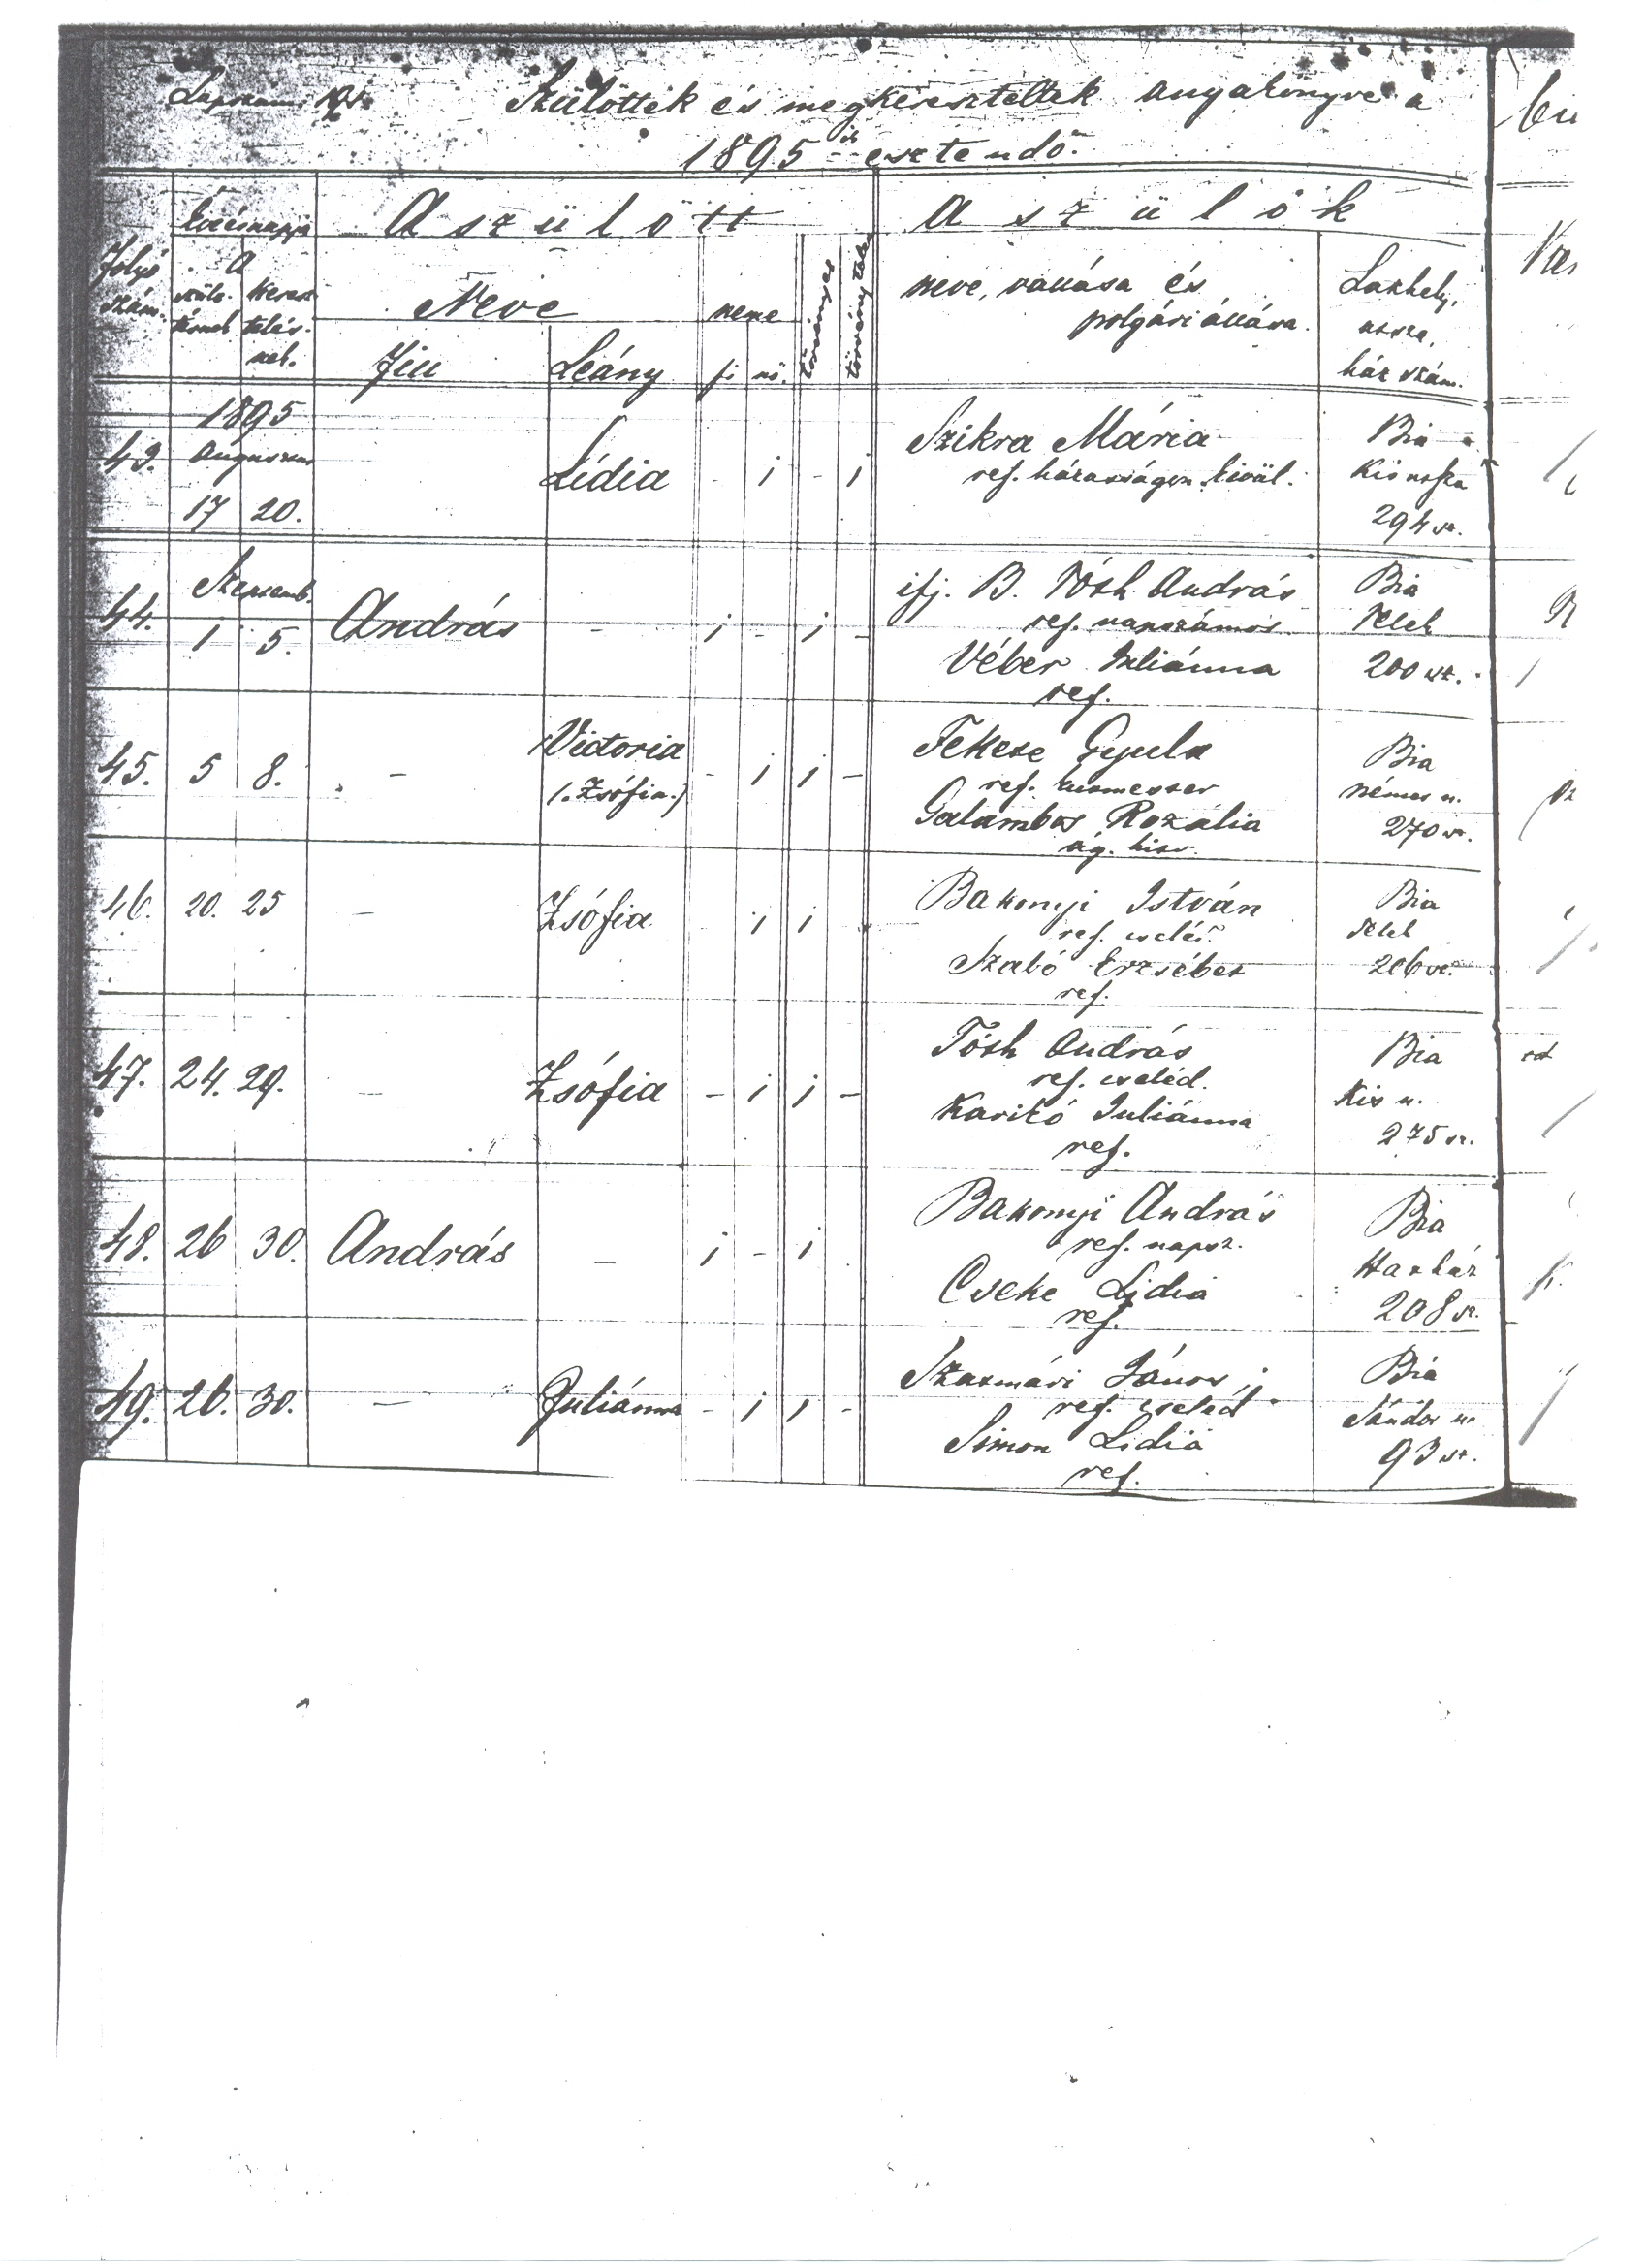 Lapszám:
Szülöttek és megkereszteltek anyakönyve a
1895-ik esztendő.
Év és napja
A szülött
A szülők
Folyó
szám.
a
szüle-
tésnek
keresz
telés-
nek.
Neve
neme
törvényes
törvénytelen
neve, vallása és
polgári állása.
Lakhely,
utsza,
ház szám.
Fiu
Leány
fi
nő.
1895
43.
Augusztus
17 20.
Lídia
- 1 - 1
Szikra Mária
ref. házasságon kivül.
Bia
Kis utsza
294 sz.
44.
Szeptemb.
1 5.
András
-
1 - 1 -
ifj. B. Tóth András
ref. napszámos
Véber Juliánna
ref.
Bia
Telek
200 sz.
45. 5 8.
-
Victoria
(.Zsófia.)
- 1 1 -
Fekete Gyula
ref.
Galambos Rozália
ág. hitv.
Bia
német u.
270 sz.
46. 20. 25
-
Zsófia
1 1
Bakonyi István
ref. cseléd
Szabó Erzsébet
ref.
Bia
Telek
206 sz.
47. 24. 29.
-
Zsófia
- 1 1 -
Tóth András
ref. cseléd.
Karikó Juliánna
ref.
Bia
Kis u.
275 sz.
48. 26 30.
András
-
1 - 1
Bakonyi András
ref. napsz.
Cseke Lidia
ref.
Bia
208 sz.
49. 26. 30.
-
Juliánna
- 1 1 -
Szatmári János
ref. cseléd
Simon Lidia
ref.
Bia
Sándor u.
93 sz.